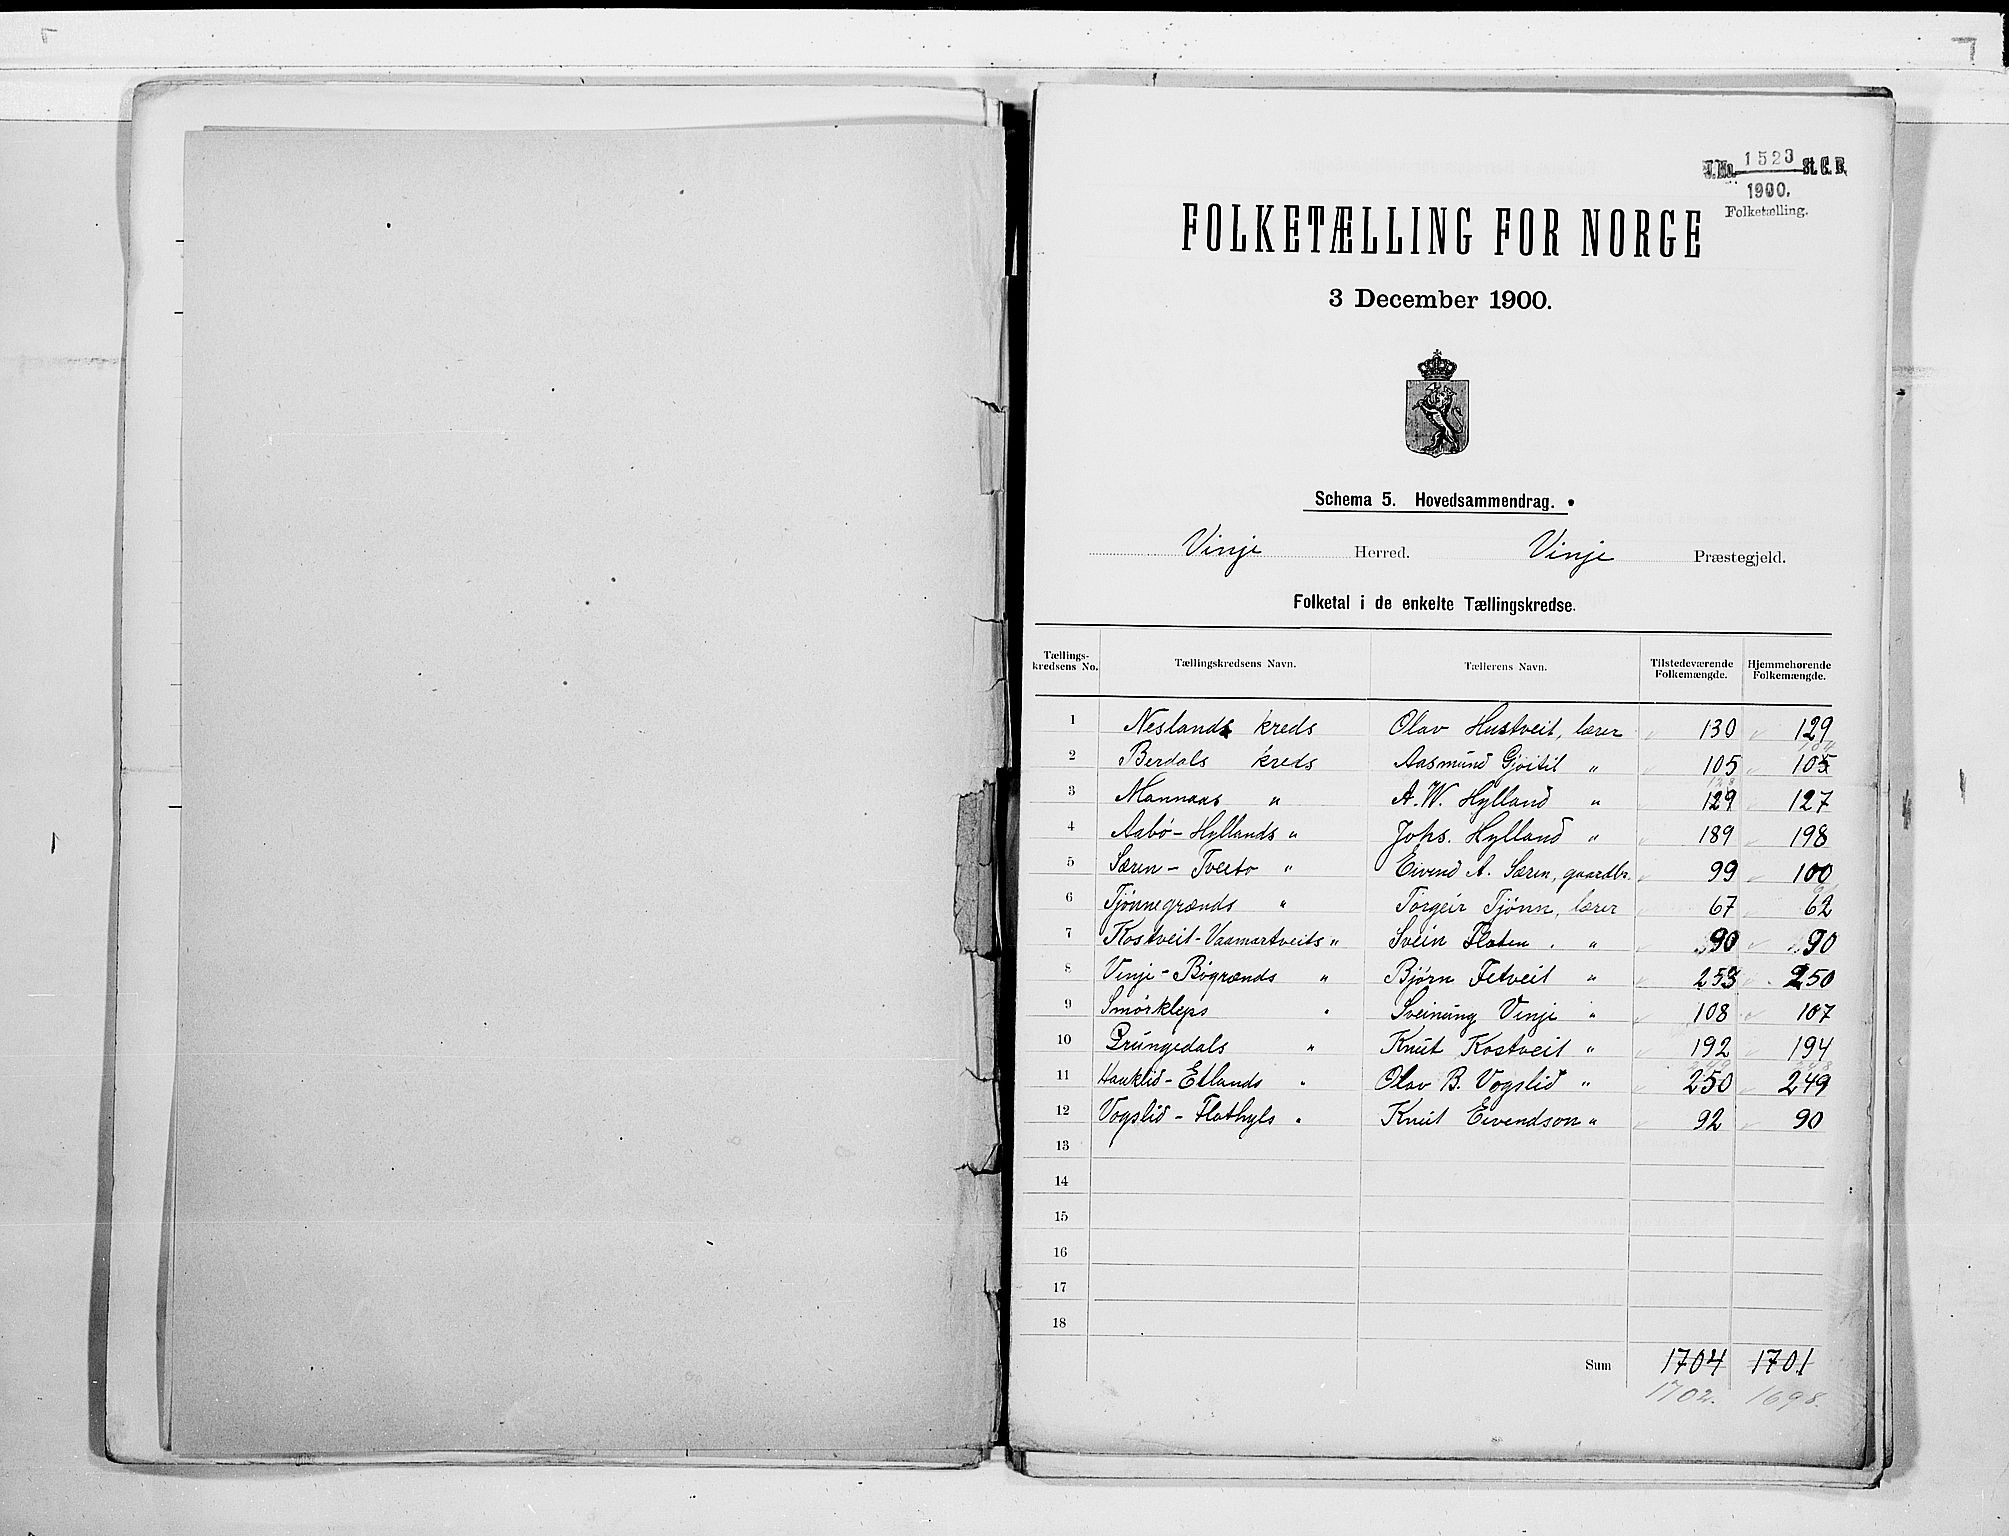 J.No. 1523 St. C. B.
1900.
Folketælling.
FOLKETÆLLING FOR NORGE
3 December 1900.
Schema 5. Hovedsammendrag.
Vinje Herred. Vinje Præstegjeld.
Folketal i de enkelte Tællingskredse.
Tællings-kredsens No. Tællingskredsens Navn. Tællerens Navn. Tilstedeværende Folkemængde. Hjemmehørende Folkemængde.
1 Neslands kreds Olav Hustveit, lærer 130 129
2 Berdals kreds Aasmund Gjøitil " 105 105
3 Mannaas " A. W. Hylland " 129 127
4 Aabø - Hyllands " Johs. Hylland " 189 198
5 Særen - Tveito " Eivend A. Særen, gaardbr. 99 100
6 Tjønnegrænds " Torgeir Tjønn, lærer 67 62
7 Kostveit - Vaamartveits " Svein Flaten. " 90 90
8 Vinje - Bøgrænds " Bjørn Fetveit " 253 250
9 Smørkleps " Sveinung Vinje " 108 107
10 Grungedals " Knut Kostveit " 192 194
11 Hauklid - Edlands " Olav B. Vogslid " 250 249
12 Vogslid - Flathyls " Knut Eivendson " 92 90
13
14
15
16
17
18
Sum 1704 1701
1702. 1698.